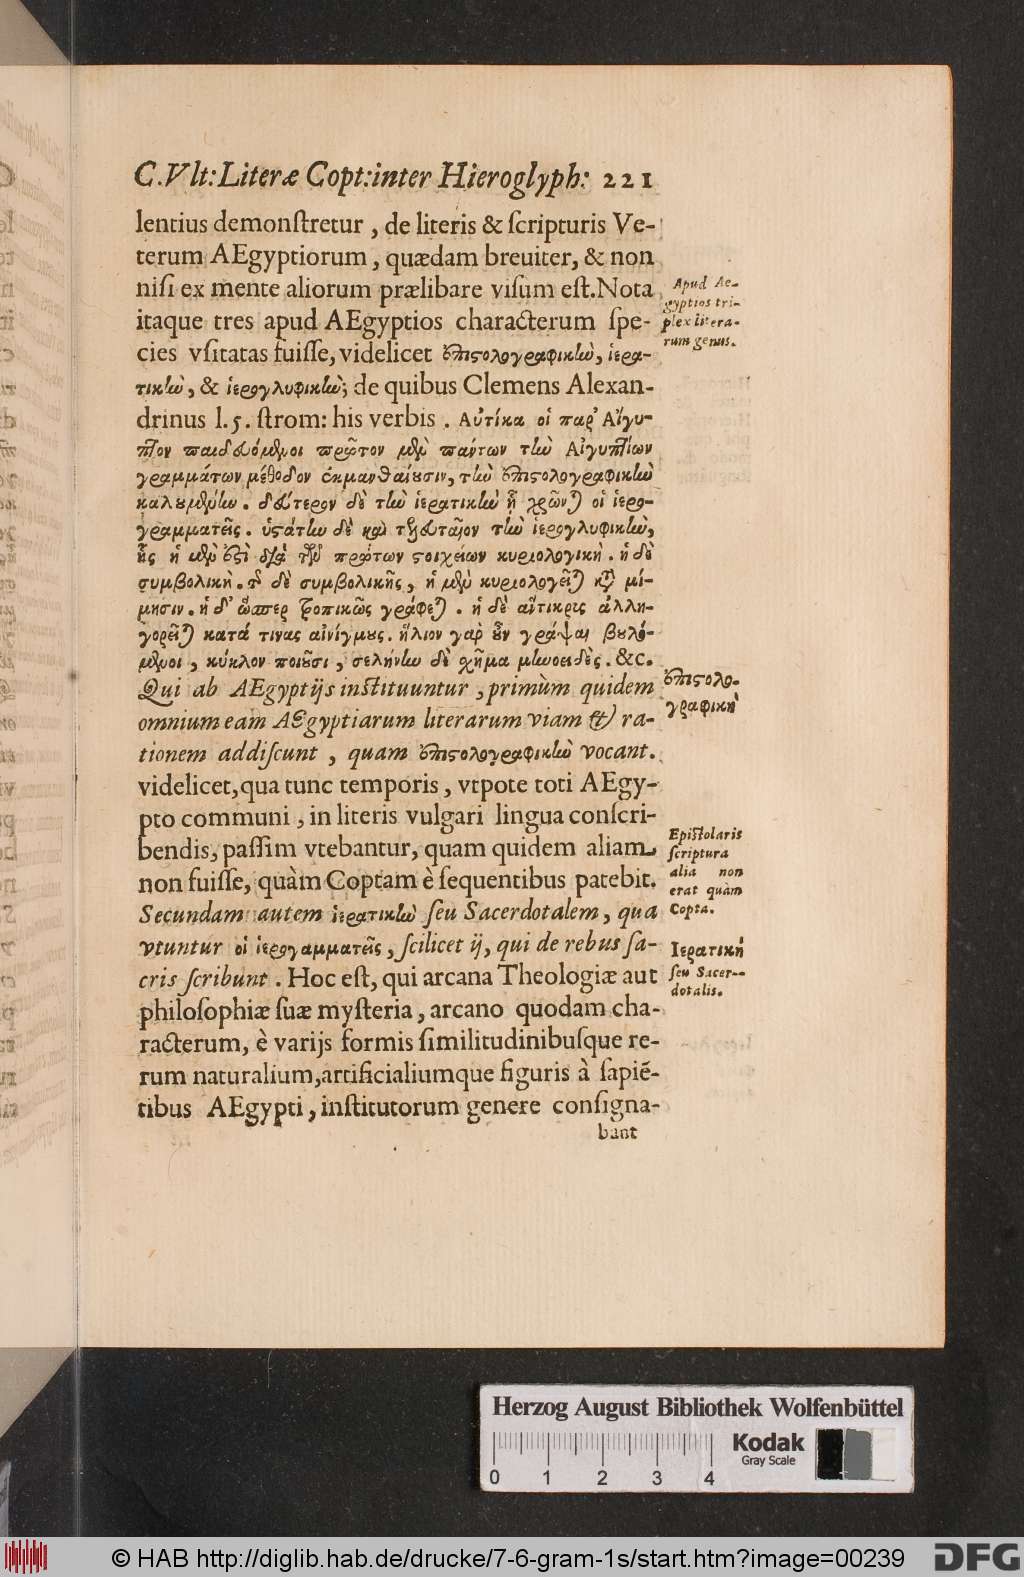 C. Vlt: Literæ Copt: inter Hieroglyph: 221
lentius demonſtretur, de literis & ſcripturis Ve-
terum AEgyptiorum, quædam breuiter, & non
niſi ex mente aliorum prælibare viſum eſt. Nota
itaque tres apud AEgyptios characterum ſpe-
cies vſitatas fuiſſe, videlicet ἐπιστολογραφικὴν, ἱερα-
τικὴν, & ἱερογλυφικὴν; de quibus Clemens Alexan-
drinus l. 5. ſtrom: his verbis. Αὐτίκα οἱ παρ' Αἰγυ-
πτίον παιδευόμενοι πρῶτον μὲν πάντων τὴν Αἰγυπτίων
γραμμάτων μέθοδον ἐκμανθαίουσιν, τὴν ἐπιστολογραφικὴν
καλουμένην. δεύτερον δὲ τὴν ἱερατικὴν ᾗ χρῶνται οἱ ἱερο-
γραμματεῖς. ὑστάτην δὲ καὶ τελευταῖον τὴν ἱερογλυφικὴν,
ἧς ἡ μὲν ἐστὶ διὰ τῶν πρώτων στοιχείων κυριολογικὴ. ἡ δὲ
συμβολικὴ. τῆς δὲ συμβολικῆς, ἡ μὲν κυριολογεῖται κατὰ μί-
μησιν. ἡ δ' ὥσπερ τροπικῶς γράφεται. ἡ δὲ αἴτικρις ἀλλη-
γορεῖται κατά τινας αἰνίγμους. ἥλιον γαρ οὖν γράψαι βουλό-
μενοι, κύκλον ποιοῦσι, σελήνην δὲ χῆμα μηνοειδὲς. &c.
Qui ab AEgyptijs inſtituuntur, primùm quidem
omnium eam AEgyptiarum literarum viam & ra-
tionem addiſcunt, quam ἐπιστολογραφικὴν vocant.
videlicet, qua tunc temporis, vtpote toti AEgy-
pto communi, in literis vulgari lingua conſcri-
bendis, paſſim vtebantur, quam quidem aliam
non fuiſſe, quàm Coptam è ſequentibus patebit.
Secundam autem ἱερατικὴν ſeu Sacerdotalem, qua
vtuntur οἱ ἱερογαμματεῖς, ſcilicet ij, qui de rebus ſa-
cris ſcribunt. Hoc eſt, qui arcana Theologiæ aut
philoſophiæ ſuæ myſteria, arcano quodam cha-
racterum, è varijs formis ſimilitudinibuſque re-
rum naturalium, artificialiumque figuris à ſapiē-
tibus AEgypti, inſtitutorum genere conſigna-
bant
Apud Ae-
gyptios tri-
plex litera-
rum genus.
ἐπιστολο-
γραφικὴ
Epiſtolaris
ſcriptura
alia non
erat quàm
Copta.
Ἱερατικὴ
ſeu Sacer-
dotalis.
Herzog August Bibliothek Wolfenbüttel
Kodak
Gray Scale
0 1 2 3 4
© HAB http://diglib.hab.de/drucke/7-6-gram-1s/start.htm?image=00239
DFG